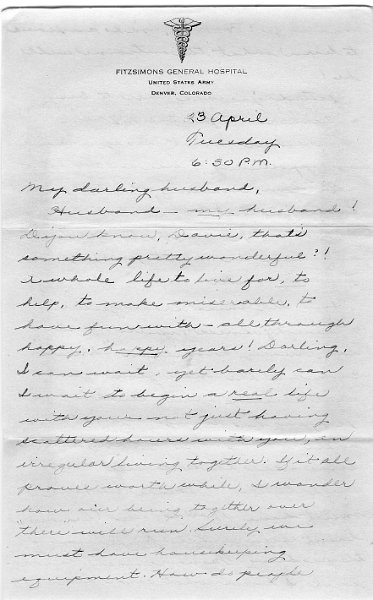 FITZSIMONS GENERAL HOSPITAL
UNITED STATES ARMY
DENVER, COLORADO
23 April
Tuesday
6:30 P.M.
My darling husband,
Husband – my husband!
D'you know, Davie, that's
something pretty wonderful?!
A whole life to live for, to
help, to make miserable, to
have fun with – all through
happy, happy years! Darling,
I can wait, yet barely can
I wait to begin a real life
with you – not just having
scattered hours with you, an
irregular living together. If it all
proves worth while, I wonder
how our being together over
there will run. Surely we
must have housekeeping
equipment. How do people